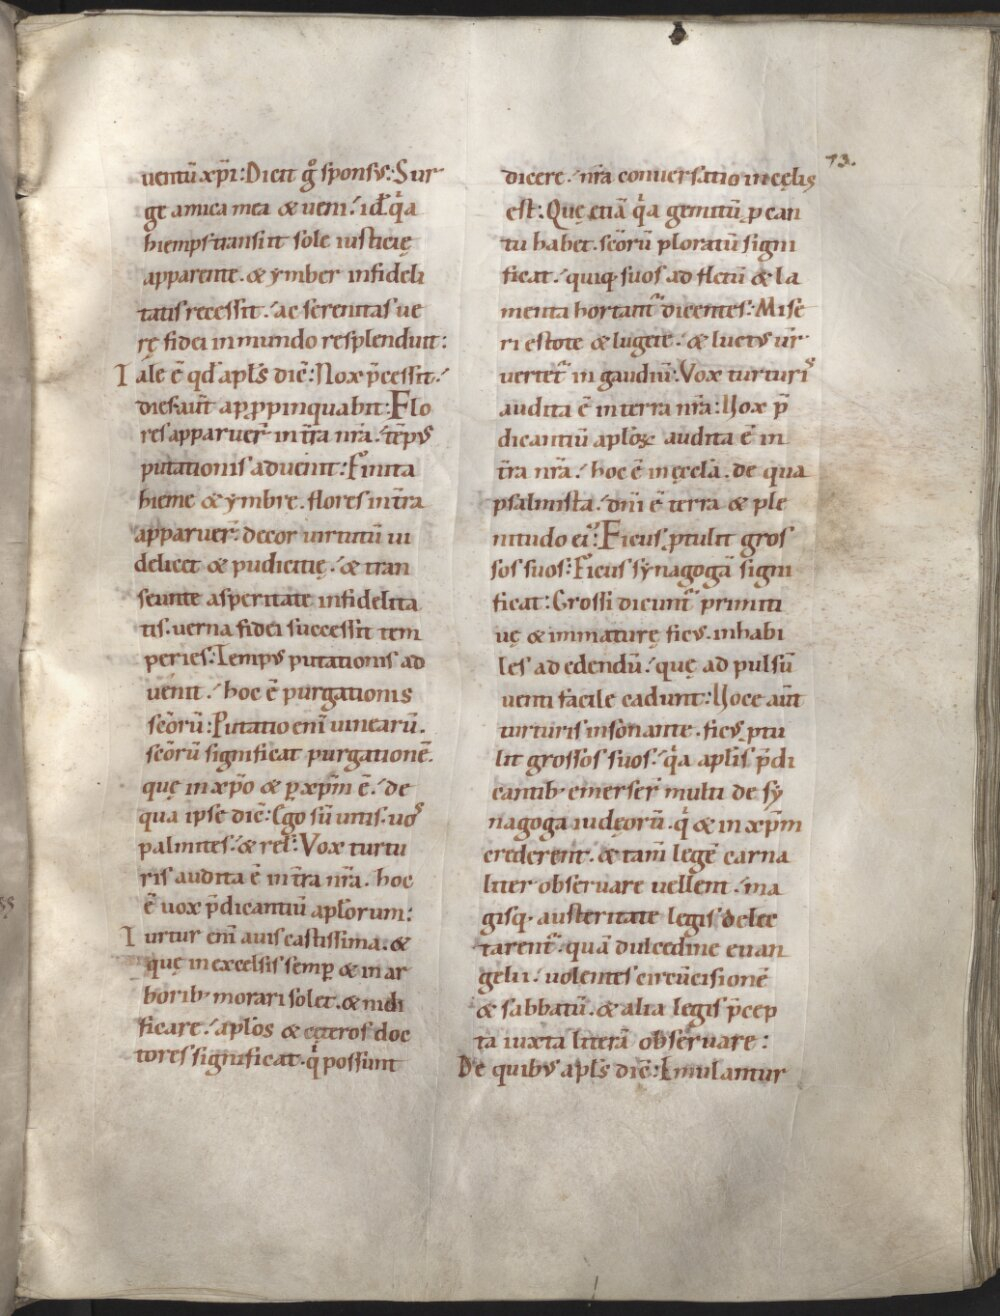 73.
uentū xp̄i: Dicit gͦ sponsus: Sur
ge amica mea & ueni. id̄ qͥa
hiemps transiit sole iusticię
apparente. & ymber infideli
tatis recessit. ac serenitas ue
rę fidei in mundo resplenduit:
Tale ē qd̄ apl̄s dic̄: Nox p̄cessit.
dies aut̄ appropinquabit: Flo
res apparuer̄ in t̄ra nr̄a. tēpus
putationis aduenit: Finita
hieme & ymbre. flores in t̄ra
apparuer̄. decor uirtutū ui
delicet & pudicitię. & tran
seunte asperitate infidelita
tis. uerna fidei successit tem
peries: Tempus putationis ad
uenit. hoc ē purgationis
sc̄orū: Putatio enī uinearū.
sc̄orū significat purgationē.
quę in xp̄o & ꝑ xp̄m ē. de
qua ipse dic̄: Ego sū uitis. uos
palmites. & rel̄: Vox turtu
ris audita ē in t̄ra nr̄a. hoc
ē uox p̄dicantiū apl̄orum:
Turtur enī auis castissima. &
quę in excelsis semꝑ & in ar
borib; morari solet. & nidi
ficare. apl̄os & cęteros doc
tores significat. qͥ possunt
dicere. nr̄a conuersatio in cęlis
est: Quę etiā qͥa gemitū ꝓ can
tu habet. sc̄orū ploratū signi
ficat. quiq; suos ad fletū & la
menta hortant᷑ dicentes: Mise
ri estote & lugete. & luctus ur̄
uertet᷑ in gaudiū: Vox turturis
audita ē in terra nr̄a: Uox p̄
dicantiū apl̄oꝝ audita ē in
t̄ra nr̄a. hoc ē in ęcc̄la. de qua
psalmista. dn̄i ē terra & ple
nitudo ei᷒: Ficus ꝓtulit gros
sos suos: Ficus synagogā signi
ficat: Grossi dicunt᷑ primiti
uę & immaturę ficus. inhabi
les ad edendū. quę ad pulsū
uenti facile cadunt: Uoce aut̄
turturis insonante. ficus ꝓtu
lit grossos suos. qͥa apl̄is p̄di
cantib; emerser̄ multi de sy
nagoga iudęorū. qͥ & in xp̄m
crederent. & tam̄ legē carna
liter obseruare uellent. ma
gisq; austeritate legis delec
tarent᷑. quā dulcedine euan
gelii. uolentes circūcisionē
& sabbatū. & alia legis p̄cep
ta iuxta literā obseruare:
De quibus apl̄s dic̄: Emulantur